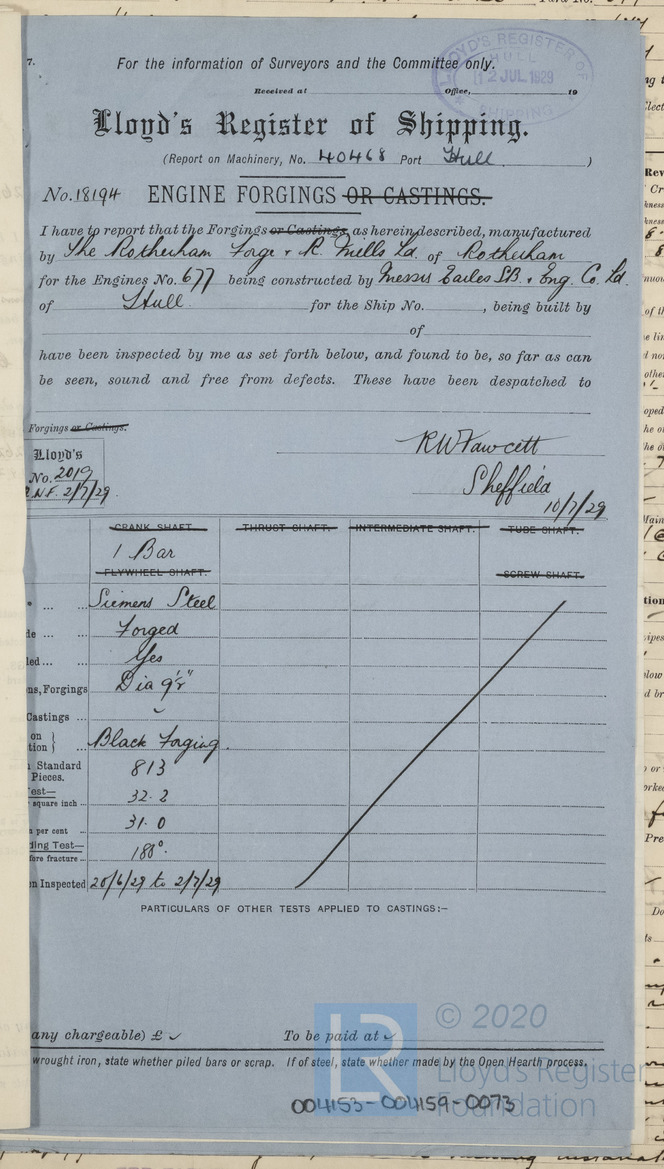 7.
For the information of Surveyors and the Committee only.
LLOYD'S REGISTER OF SHIPPING
HULL
12 JUL 1929
Received at Office, 19
Lloyd's Register of Shipping.
(Report on Machinery, No. 40468 Port Hull )
No. 18194 ENGINE FORGINGS OR CASTINGS.
I have to report that the Forgings or Castings, as herein described, manufactured
by The Rotherham Forge & R. Mills Ld. of Rotherham
for the Engines No. 677 being constructed by Messrs Earles SB. & Eng. Co. Ld.
of Hull for the Ship No. , being built by
of
have been inspected by me as set forth below, and found to be, so far as can
be seen, sound and free from defects. These have been despatched to
Forgings or Castings.
Lloyd's
No. 2019
2/7/29.
RW Fawcett
Sheffield
10/7/29
CRANK SHAFT. THRUST SHAFT. INTERMEDIATE SHAFT. TUBE SHAFT.
1 Bar
FLYWHEEL SHAFT. SCREW SHAFT.
Siemens Steel
Forged
Yes
Forgings Dia 9½"
Castings
Black Forging.
Standard 813
Pieces.
square inch 32.2
per cent 31.0
Test— 180°.
fore fracture
Inspected 20/6/29 to 2/7/29
PARTICULARS OF OTHER TESTS APPLIED TO CASTINGS:—
any chargeable) £ To be paid at
wrought iron, state whether piled bars or scrap. If of steel, state whether made by the Open Hearth process.
LR © 2020
Lloyd's Register
Foundation
004153-004159-0073